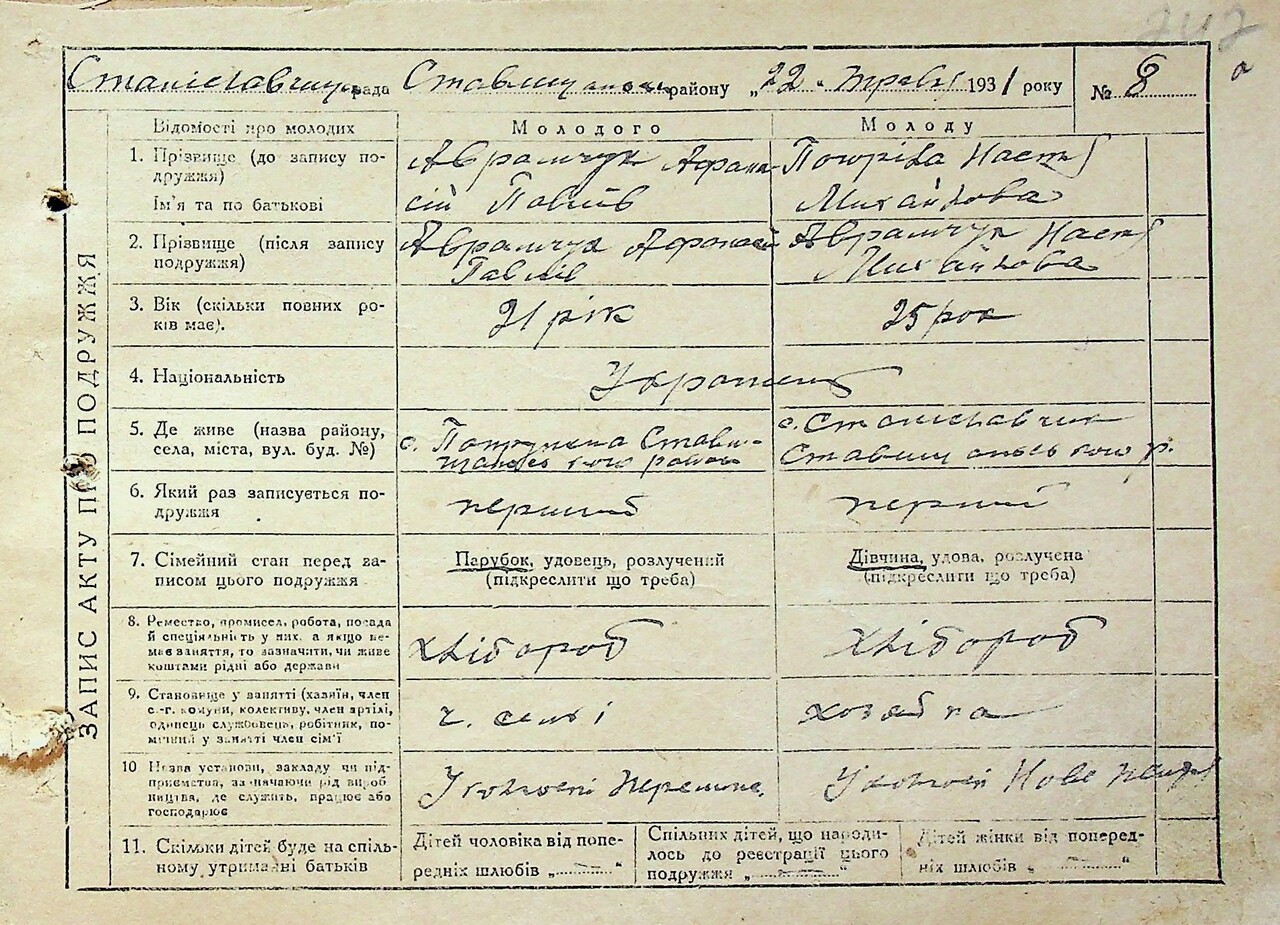 242
а
Станіславчицьк рада Ставищанськ району „22" Травня 1931 року № 8
ЗАПИС АКТУ ПРО ПОДРУЖЖЯ
Відомості про молодих
Молодого
Молоду
1. Прізвище (до запису по-
дружжя)
Ім'я та по батькові
Аврамчук Афана-
сій Павлів
Погріва Настя
Михайлова
2. Прізвище (після запису
подружжя)
Аврамчук Афанасій
Павлів
Аврамчук Настя
Михайлова
3. Вік (скільки повних ро-
ків має).
21 рік
25 рок
4. Національність
5. Де живе (назва району,
села, міста, вул. буд. №)
с. Стави-
щанського району
с. Станіславчик
Ставищанського р.
6. Який раз записується по-
дружжя
перший
перший
7. Сімейний стан перед за-
писом цього подружжя
Парубок, удовець, розлучений
(підкреслити що треба)
Дівчина, удова, розлучена
(підкреслити що треба)
8. Ремество, промисел, робота, посада
й спеціяльність у них, а якщо не-
має заняття, то зазначити, чи живе
коштами рідні або держави
хлібороб
хлібороб
9. Становище у занятті (хазяїн, член
с.-г. комуни, колективу, член артілі,
одинець службовець, робітник, по-
мічний у занятті член сім'ї
ч. семї
хозяйка
10 Назва установи, закладу чи під-
приємства, зазначаючи рід вироб
ництва, де служить, працює або
господарює
У колгоспі
У колгоспі Нове
11. Скільки дітей буде на спіль-
ному утриманні батьків
Дітей чоловіка від попе-
редніх шлюбів „ — "
Спільних дітей, що народи-
лось до реєстрації цього
подружжя „ — "
Дітей жінки від поперед-
ніх шлюбів „ — "